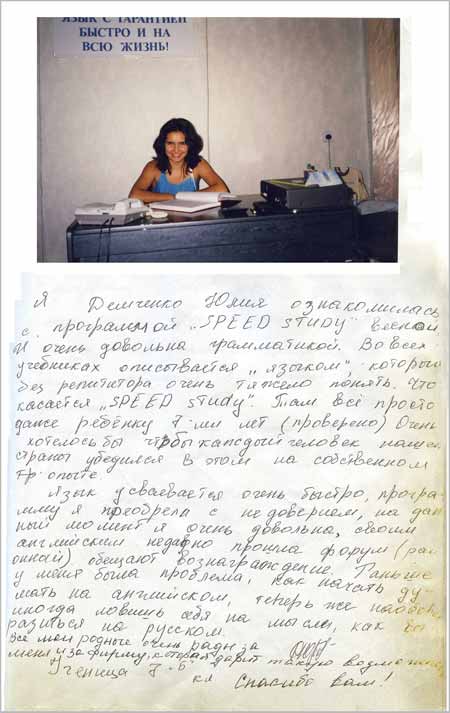 ЯЗЫК С ГАРАНТИЕЙ
БЫСТРО И НА
ВСЮ ЖИЗНЬ!
Я Демченко Юлия ознакомилась
с программой „SPEED STUDY" весной
И очень довольна грамматикой. Во всех
учебниках описывается „языком", который
без репититора очень тяжело понять. Что
касается „SPEED study". Там всё просто
даже ребёнку 7-ми лет (проверено) Очень
хотелось бы чтобы каждый человек нашей
страны убедился в этом на собственном
опыте.
Язык усваевается очень быстро, програ-
мму я преобрела с недоверием, на дан
ный момент я очень довольна, своим
английским недавно прошла форум (рай
онный) обещают вознаграждение. Раньше
у меня была проблема, как начать ду-
мать на английском, теперь же наоборот
иногда ловишь себя на мысли, как вы
разиться на русском.
Все мои родные очень рады за
меня и за фирму, которая дарит такую возможно
Ученица 7-Б кл Спасибо вам!